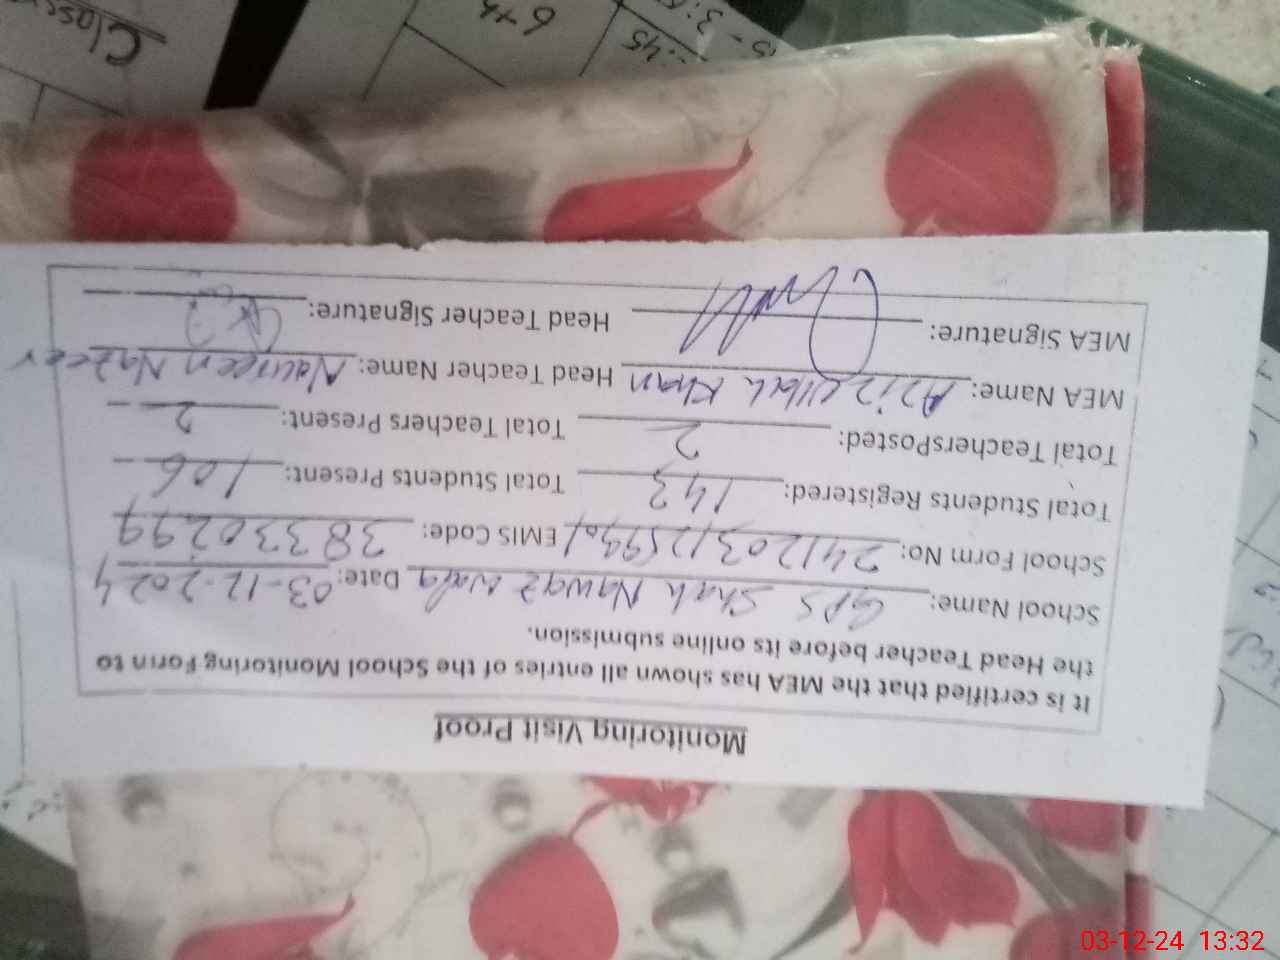 Monitoring Visit Proof
It is certified that the MEA has shown all entries of the School Monitoring Form to
the Head Teacher before its online submission.
School Name: GPS Shah Nawaz wala Date: 03-12-2024
School Form No: EMIS Code: 38330299
Total Students Registered: 143 Total Students Present: 106
Total TeachersPosted: 2 Total Teachers Present: 2
MEA Name: Aziz Ullah Khan Head Teacher Name: Noureen Nazeer
MEA Signature: Head Teacher Signature:
6th
03-12-24 13:32